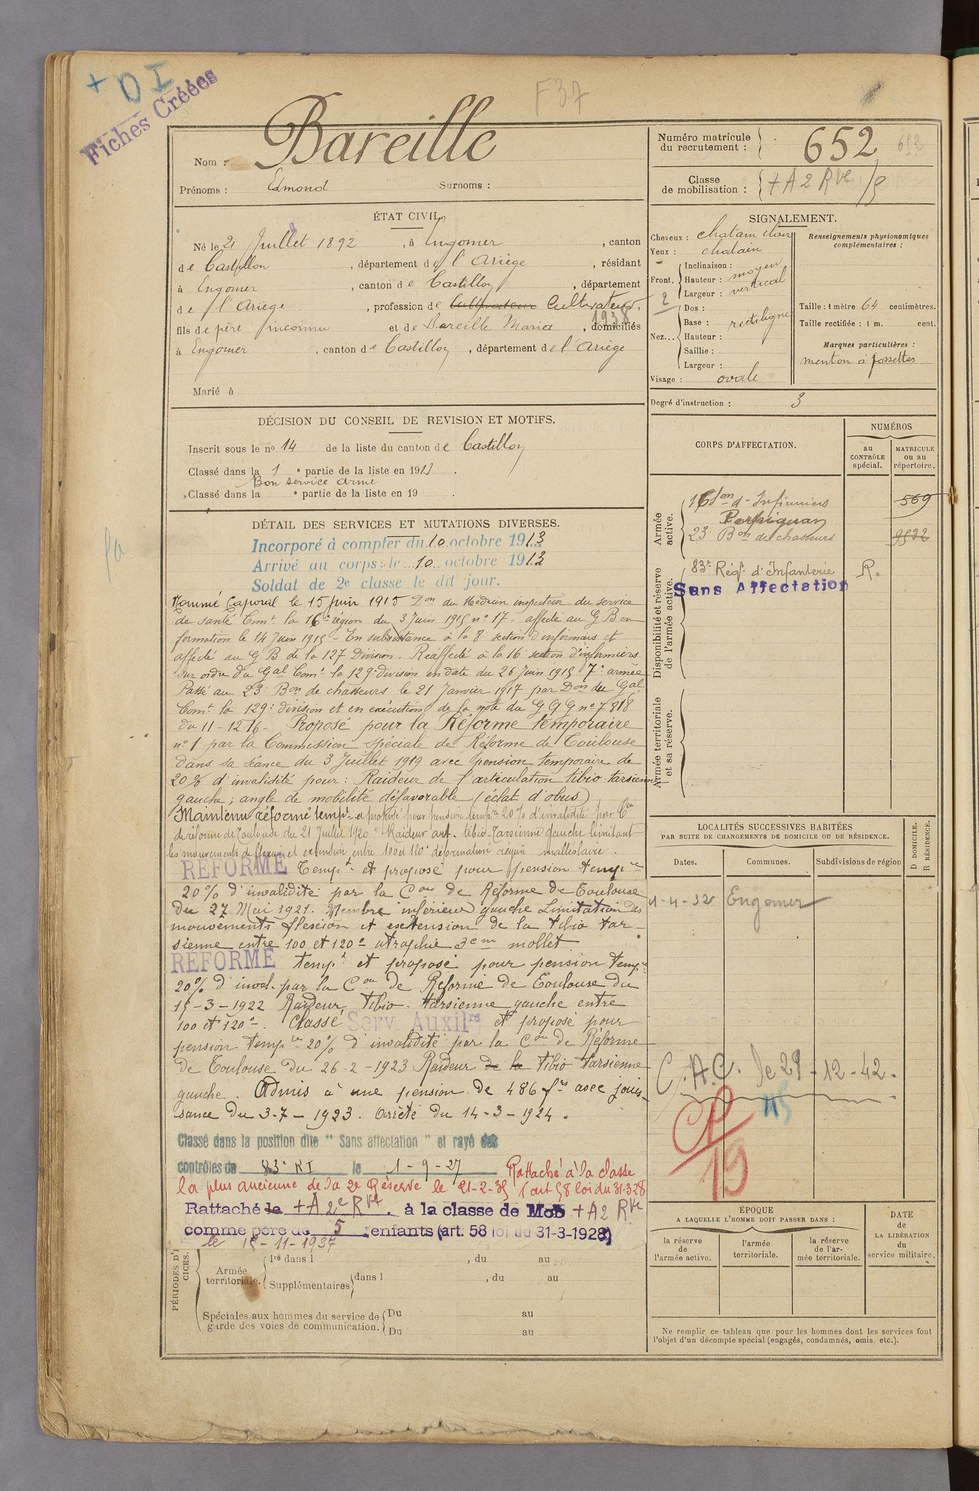 + D I
Fiches Créées
F37
Nom : Bareille
Prénoms : Edmond Surnoms :
Numéro matricule du recrutement : 652
652
Classe de mobilisation : + A 2 Rve /8
ÉTAT CIVIL
Né le 21 Juillet 1892, à Engomer, canton
de Castillon, département de l'Ariège, résidant
à Engomer, canton de Castillon, département
de l'Ariège, profession de Cultivateur Cultivateur,
1938
fils de père inconnu et de Bareille Maria, domiciliés
à Engomer, canton de Castillon, département de l'Ariège
Marié à
SIGNALEMENT.
Cheveux : chatain clair
Yeux : chatain
Front. Inclinaison :
Hauteur : moyen
Largeur : vertical
Nez... Dos :
Base : rectiligne
Hauteur :
Saillie :
Largeur :
Visage : ovale
Renseignements physionomiques complémentaires :
Taille : 1 mètre 64 centimètres.
Taille rectifiée : 1 m. cent.
Marques particulières :
menton à fossettes
Degré d'instruction : 3
DÉCISION DU CONSEIL DE REVISION ET MOTIFS.
Inscrit sous le no 14 de la liste du canton de Castillon
Classé dans la 1e partie de la liste en 1913.
Bon service armé
Classé dans la e partie de la liste en 19 .
CORPS D'AFFECTATION.
NUMÉROS
au CONTRÔLE spécial.
MATRICULE ou au répertoire.
Armée active.
16 Son d'Infirmiers 569
Perpignan
23 Bon de chasseurs 9522
Disponibilité et réserve de l'armée active.
83e Régt d'Infanterie R.
Sans Affectation
Armée territoriale et sa réserve.
DÉTAIL DES SERVICES ET MUTATIONS DIVERSES.
Incorporé à compter du 10 octobre 1913
Arrivé au corps le 10 octobre 1913
Soldat de 2e classe le dit jour.
Nommé Caporal le 15 Juin 1915 Don du Médecin inspecteur du service
de santé Comt la 16e région du 3 Juin 1915 no 17. affecté au G B en
formation le 14 Juin 1915 - En subsistance à la 8 section d'infirmiers et
affecté au G B de la 127 Division. Réaffecté à la 16 section d'infirmiers
sur ordre du Gal Comt la 129e division en date du 26 Juin 1915 7e armée
Passé au 23e Bon de chasseurs le 21 Janvier 1917 par Don du Gal
Comt la 129e division et en exécution de la note du G Q G no 7818
du 11-12-16. Proposé pour la Réforme temporaire
no 1 par la Commission spéciale de Réforme de Toulouse
dans sa séance du 3 Juillet 1919 avec pension temporaire de
20% d'invalidité pour : Raideur de l'articulation tibio tarsienne
gauche ; angle de mobilité défavorable (éclat d'obus)
Maintenu réformé tempre et proposé pour pension tempre 20% d'invalidité par Con
de réforme de Toulouse du 21 Juillet 1920 "Raideur art. tibio-tarsienne gauche limitant
les mouvements de flexion et extension entre 100 et 120° déformation région malléolaire.
RÉFORMÉ Tempt et proposé pour pension tempre
20% d'invalidité par la Con de Réforme de Toulouse
du 27 Mai 1921. Membre inférieur gauche Limitation des
mouvements flexion et extension de la tibio tar-
sienne entre 100 et 120° atrophie 3cm mollet
RÉFORMÉ tempt et proposé pour pension tempre
20% d'inval. par la Con de Réforme de Toulouse du
15-3-1922 Raideur tibio-tarsienne gauche entre
100 et 120°. Classé Serv. Auxilre et proposé pour
pension tempre 20% d'invalidité par la Con de Réforme
de Toulouse du 26-2-1923 Raideur de la tibio tarsienne
gauche. Admis à une pension de 486 frs avec jouis-
sance du 3-7-1923. Arrêté du 14-3-1924.
Classé dans la position dite "Sans affectation" et rayé des
contrôles du 83e RI le 1-9-27 Rattaché à la classe
la plus ancienne de la 2e Réserve le 21-2-35 (art 58 loi du 31-3-28
Rattaché le + A 2e Rve à la classe de Mob + A2 Rve
comme père de 5 enfants (art. 58 loi du 31-3-1928)
le 15-11-1937
LOCALITÉS SUCCESSIVES HABITÉES
PAR SUITE DE CHANGEMENTS DE DOMICILE OU DE RÉSIDENCE.
Dates. Communes. Subdivisions de région D DOMICILE. R RÉSIDENCE.
1-4-32 Engomer
C.A.C. le 29-12-42.
CP
19
PÉRIODES D'
CICES.
Armée territoriale. 1re dans l , du au
Supplémentaires dans l , du au
Spéciales aux hommes du service de garde des voies de communication. Du au
Du au
ÉPOQUE
A LAQUELLE L'HOMME DOIT PASSER DANS :
la réserve de l'armée active.
l'armée territoriale.
la réserve de l'armée territoriale.
DATE DE LA LIBÉRATION du service militaire.
Ne remplir ce tableau que pour les hommes dont les services font
l'objet d'un décompte spécial (engagés, condamnés, omis, etc.).